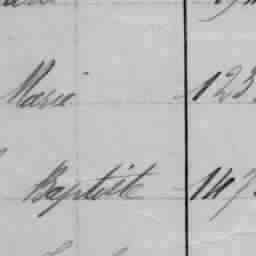 Marie 123
Baptiste 147